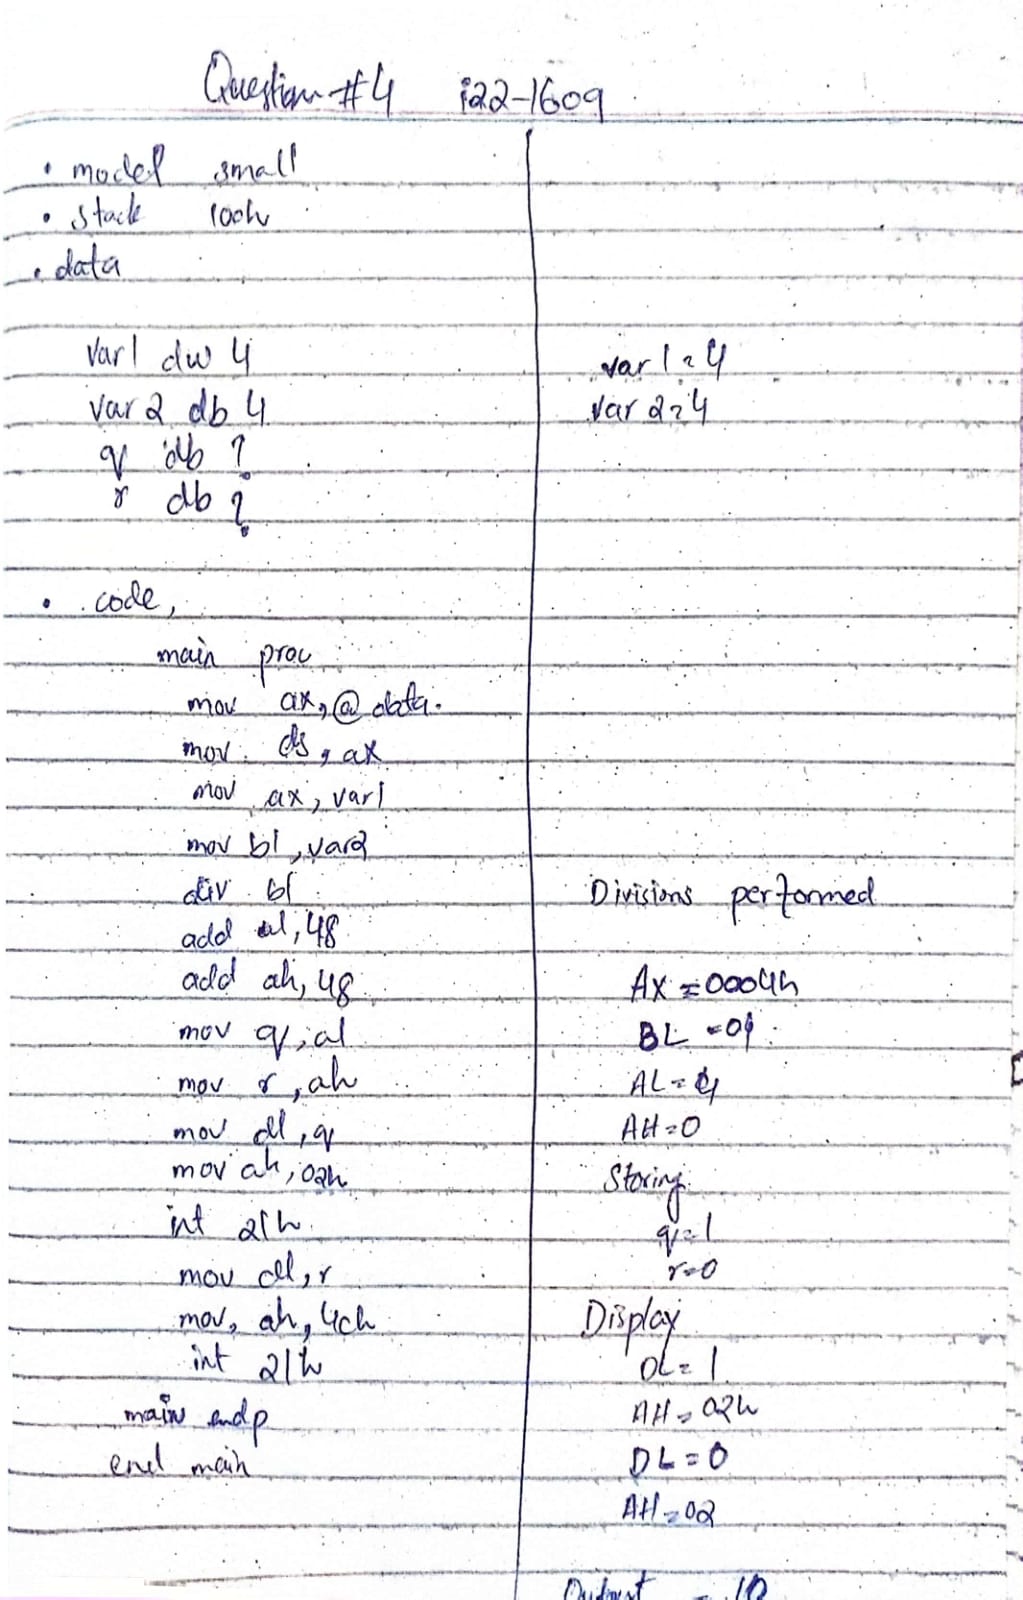 Question #4 i22-1609
. model small
. stack 100h
. data
var1 dw 4
var2 db 4
q db ?
r db ?
. code
main proc
mov ax, @data.
mov ds, ax
mov ax, var1
mov bl, var2
div bl
add al, 48
add ah, 48
mov q, al
mov r, ah
mov dl, q
mov ah, 02h
int 21h
mov dl, r
mov, ah, 4ch
int 21h
main endp
end main
var1 = 4
var2 = 4
Divisions performed
AX = 0004h
BL = 04
AH = 0
Storing
q = 1
r = 0
Display
DL = 1
AH = 02h
DL = 0
AH = 02
Output = 10